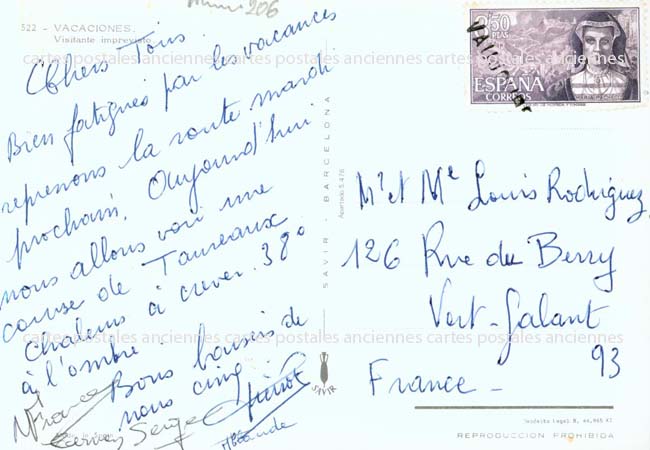 206
522 - VACACIONES.
Visitante imprevisto
Chers Tous.
Bien fatigués par les vacances
reprenons la route mardi
prochain. Aujourd'hui
nous allons voir une
course de Taureaux
Chaleurs à crever. 38°
à l'ombre.
Bons baisers de
nous cinq.
France
Serge
Pierrot
SAVIR - BARCELONA
Apartado 5.476
SAVIR
2'50 PTAS
ESPAÑA
CORREOS
Mr et Me Louis Rodriguez
126 Rue du Berry
Vert-Galant
93
France -
Depósito Legal B. 44.965-XI
REPRODUCCION PROHIBIDA
cartes postales anciennes cartes postales anciennes cartes postales anciennes
cartes postales anciennes cartes postales anciennes cartes postales anciennes